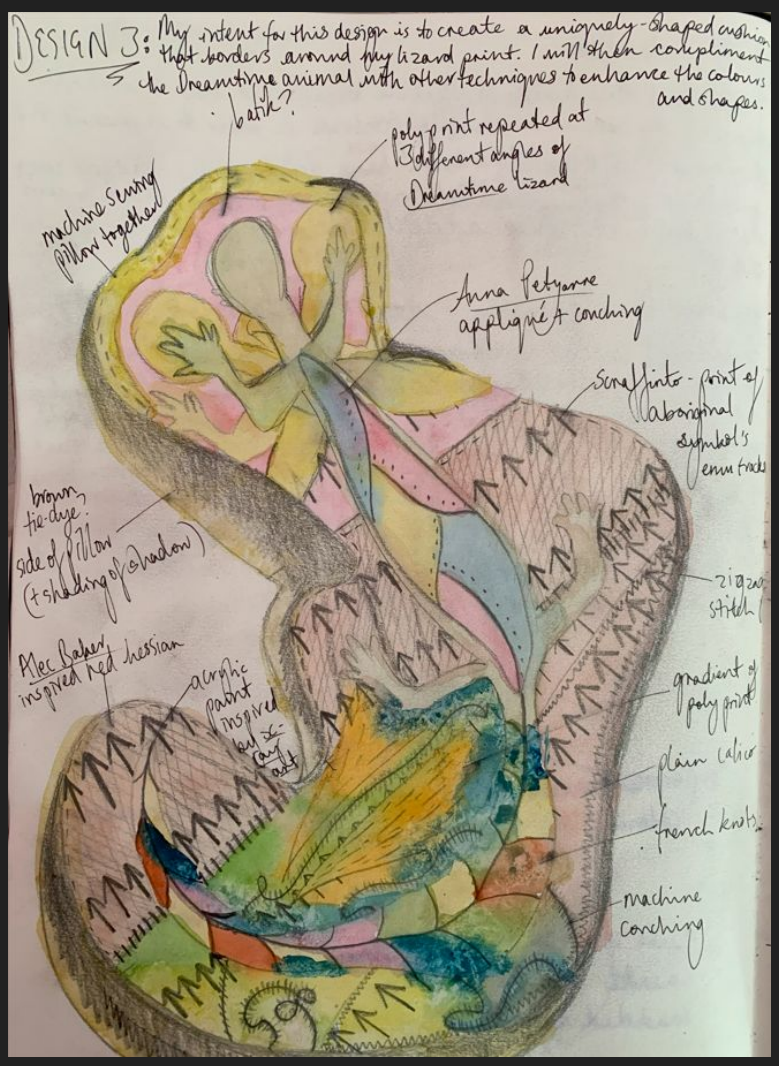 DESIGN 3: My intent for this design is to create a uniquely-shaped cushion
that borders around my lizard print. I will then compliment
the Dreamtime animal with other techniques to enhance the colours
and shapes.
batik?
poly print repeated at
3 different angles of
Dreamtime lizard
machine sewing
pillow together
Anna Petyarre
appliqué + couching
scraffinto - print of
aboriginal
symbol's
emu tracks
brown
tie-dye?
side of pillow
(+ shading of shadow)
zigzag
stitch
Alec Baker
inspired red hessian
acrylic
paint
inspired
by x-
ray
art
gradient of
poly print
plain calico
french knots
machine
couching